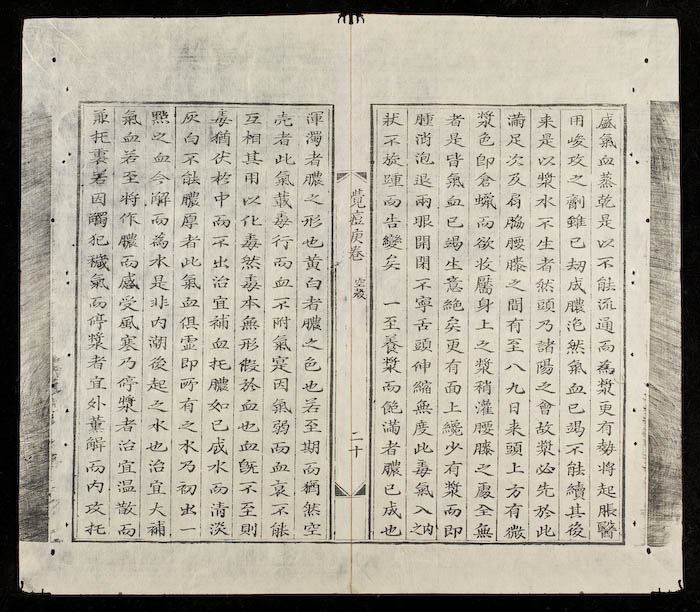 盛氣血蒸乾是以不能流通而為漿更有勢將起脹醫
用峻攻之劑雖已刼成膿泡然氣血已竭不能續其後
来是以漿水不生者然頭乃諸陽之會故漿必先於此
滿足次及肩脇腰膝之間有至八九日来頭上方有微
漿色即倉蠟而欲妆靨身上之漿稍灌腰膝之處全無
者是皆氣血已竭生意絶矣更有面上纔少有漿而即
腫消泡退兩眼開閉不寧舌頭伸縮無度此毒氣入内之
狀不旋踵而告變矣 一至養漿而飽滿者膿已成也
覽痘庚卷 空發
二十
渾濁者膿之形也黄白者膿之色也若至期而猶然空
壳者此氣載毒行而血不附氣寔因氣弱而血衰不能
互相其用以化毒然毒本無形假於血也血旣不至則
毒猶伏於中而不出治宜補血托膿如已成水而清淡
灰白不能膿厚者此氣血俱虚即所有之水乃初出一
㸃之血今解而為水是非内潮後起之水也治宜大補
氣血若至將作膿而感受風寒乃停漿者治宜温散而
兼托裏若因觸犯穢氣而停漿者宜外薰解而内攻托